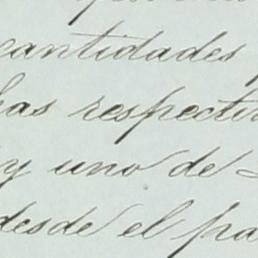 cantidades
has respecti
y uno de
desde el pa